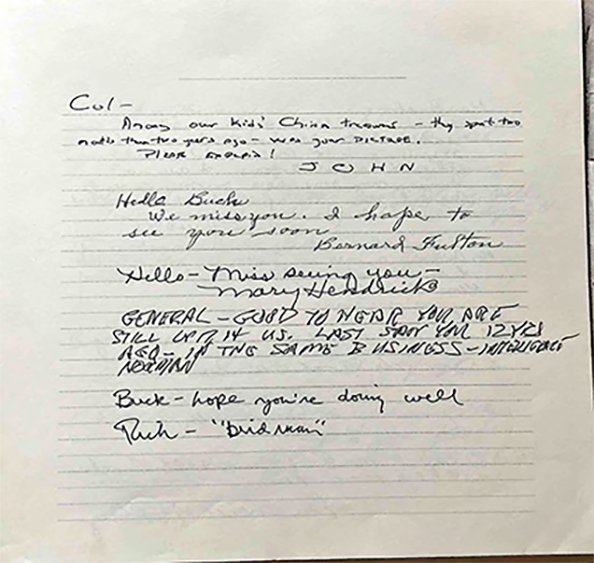 Col-
Among our kids' China treasures - they spent two
months there two years ago - was your PICTURE.
Please
JOHN
Hello Buck
We miss you. I hope to
see you soon
Bernard Fulton
Hello - Miss seeing you -
Mary Hendricks
GENERAL - GOOD TO HEAR YOU ARE
STILL WITH US. LAST SAW YOU 12 YRS
AGO - IN THE SAME BUSINESS - INTELLIGENCE
NORMAN
Buck - hope you're doing well
Rich - "birdman"